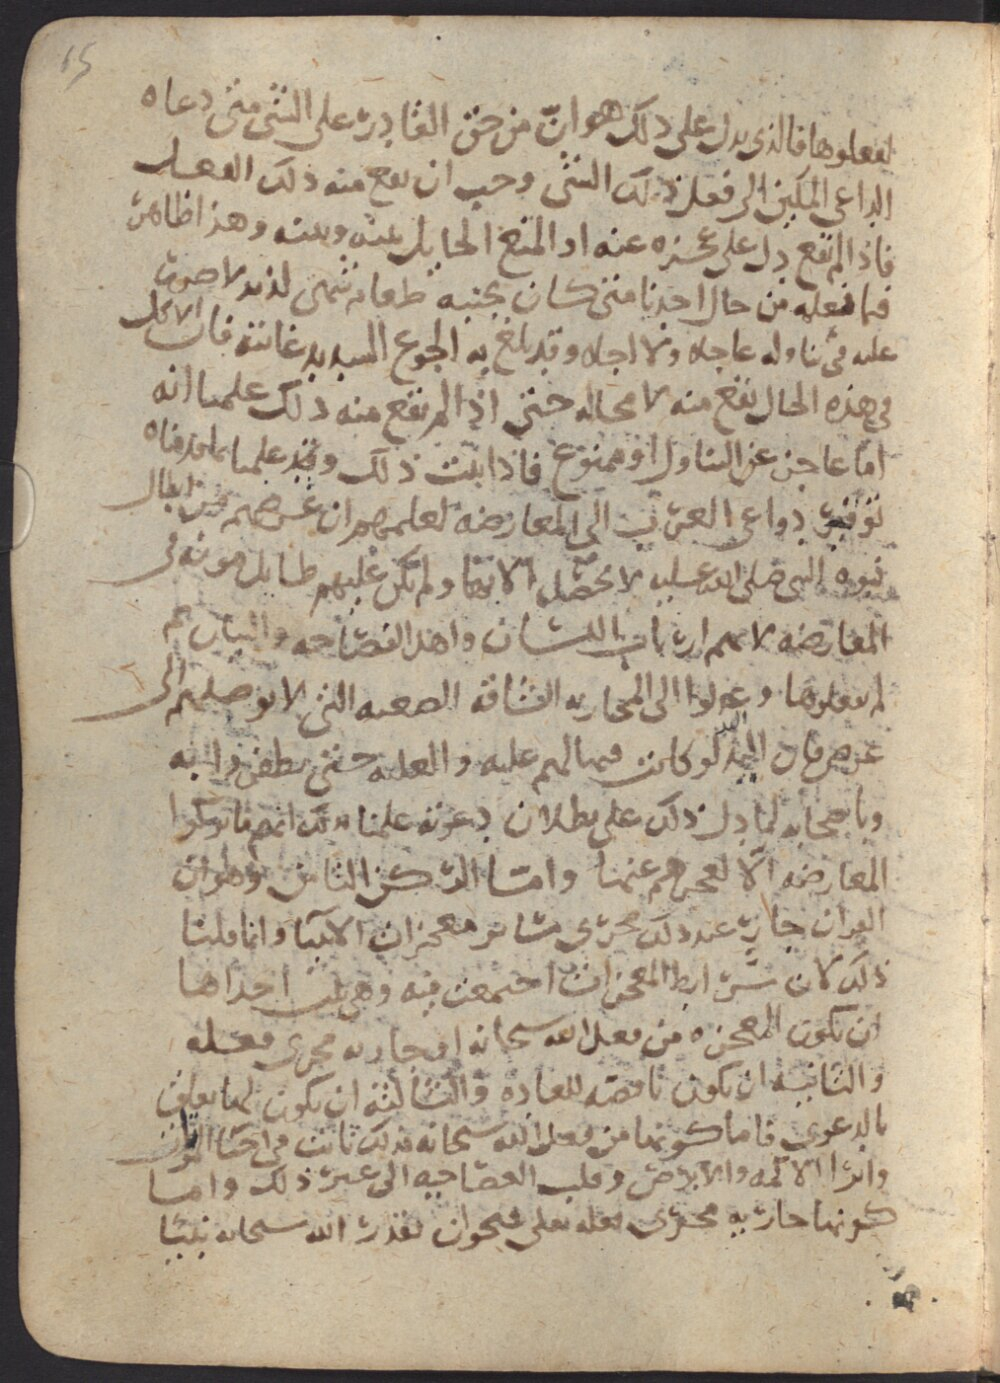 15
لفعلوها فالذي يدل على ذلك هو ان من حق القادر على الشي متى دعاه
الداعي المكين الى فعل ذلك الشي وجب ان يقع منه ذلك الفعل
فاذا لم يقع دل على عجزه عنه او المنع الحايل بينه وبينه وهذا ظاهر
فيما نعلمه من حال احدنا متى كان بجنبه طعام شهي لذيذ لا ضرر
عليه في تناوله عاجله ولا اجله وقد بلغ به الجوع الشديد غايته فان الاكل
في هذه الحال يقع منه لا محاله حتى اذا لم يقع منه ذلك علمنا انه
اما عاجز عن التناول او ممنوع فاذا ثبت ذلك وقد علمنا بما قدمناه
توفر دواعي العرب الى المعارضه لعلمهم ان غرضهم من ابطال
نبوه النبي صلى الله عليه لا يحصل الا بها ولم تكن عليهم طايل مونه في
المعارضه لانهم ارباب اللسان واهل الفصاحه والبيان ثم
لم يفعلوها وعدلوا الى المحاربه الشاقه الصعبه التي لا توصلهم الى
غرض فان اليد لو كانت فيها لهم عليه والغلبه حتى يظفروا به
وباصحابه لما دل ذلك على بطلان دعوته علمنا بذلك انهم ما تركوا
المعارضه الا لعجزهم عنها واما الركن الثامن وهو ان
القران جار عند ذلك مجرى سائر معجزات الانبيا وانما قلنا
ذلك لان شرايط المعجزات اجتمعت فيه وهي ثلث احداها
ان يكون المعجزه من فعل الله سبحانه او جاريه مجرى فعله
والثانيه ان يكون ناقضه للعاده والثالثه ان يكون لها تعلق
بالدعوى فاما كونها من فعل الله سبحانه فذلك ثابت في احيا الموتى
وابرا الاكمه والابرص وقلب العصا حيه الى غير ذلك واما
كونها جاريه مجرى فعله تعالى فنحو ان يقدر الله سبحانه نبيا